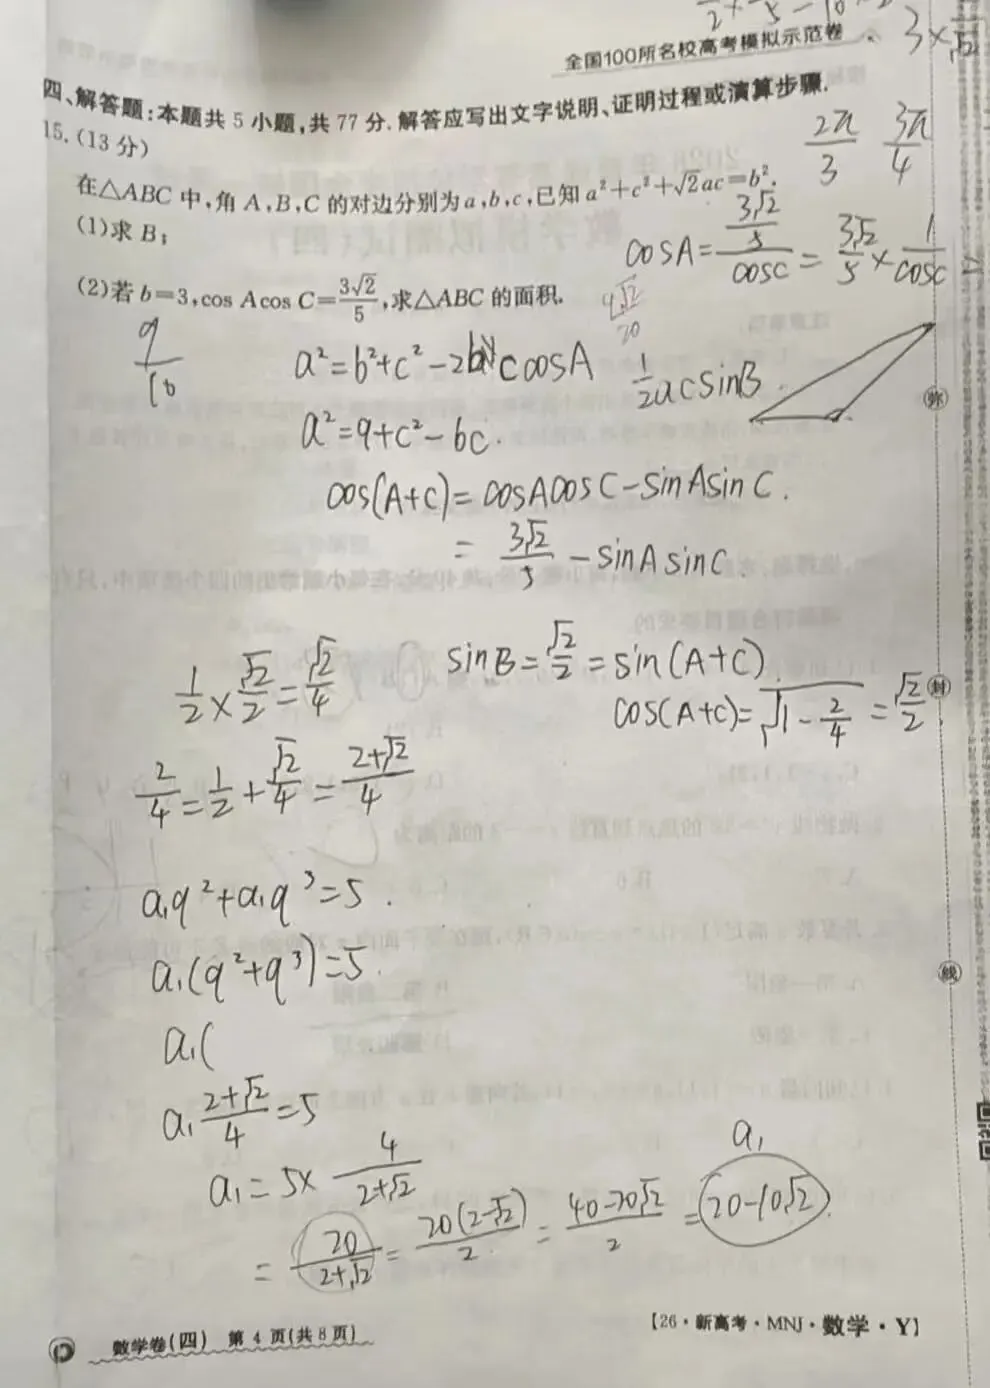 全国100所名校高考模拟示范卷
3×
四、解答题:本题共5小题,共77分.解答应写出文字说明、证明过程或演算步骤.
15.(13分)
2π/3 3π/4
在△ABC中,角A,B,C的对边分别为a,b,c,已知a²+c²+√2ac=b².
(1)求B;
cosA=(3√2/5)/cosC=3√2/5×1/cosC
(2)若b=3,cos Acos C=3√2/5,求△ABC的面积.
a²=b²+c²-2b c cosA
1/2 acsinB.
a²=9+c²-6c.
cos(A+C)=cosAcosC-sinAsinC.
=3√2/5-sinAsinC.
sinB=√2/2=sin(A+C).
1/2×√2/2=√2/4
cos(A+C)=√(1-2/4)=√2/2
2/4=1/2+√2/4=2+√2/4
a₁q²+a₁q³=5.
a₁(q²+q³)=5.
a₁(
a₁ 2+√2/4=5
a₁
a₁=5× 4/2+√2
=20/2+√2=20(2-√2)/2=40-20√2/2=20-10√2.
弥
封
线
数学卷(四) 第4页(共8页)
【26·新高考·MNJ·数学·Y】